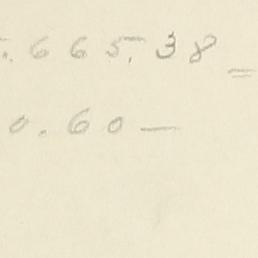 .665.38=
0.60—